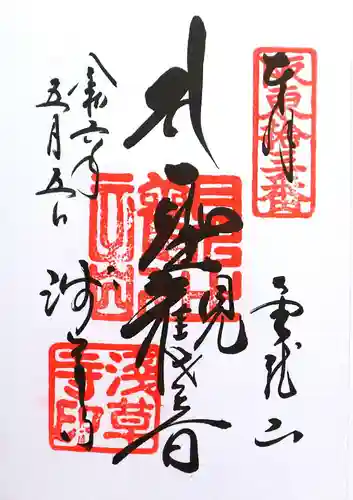 奉拝
阪東拾三番
金龍山
聖観世音
令和六年
五月五日
浅草寺
淺草寺印